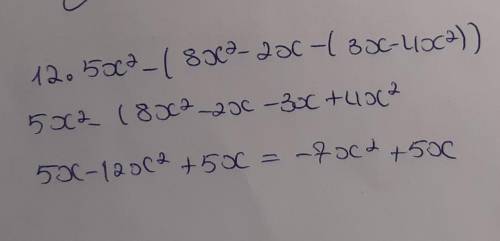 12. 5x²-(8x²-2x-(3x-4x²))
5x²-(8x²-2x-3x+4x²
5x-12x²+5x = -7x²+5x